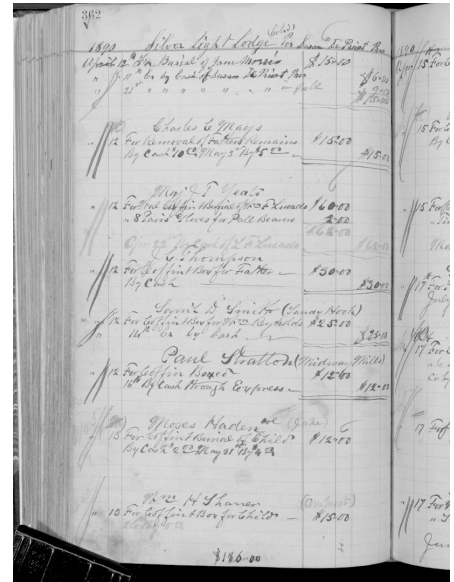 362
1890 Silver Light Lodge (Col'd) Per Susan De Priest Pres
April 12th For Burial of Jane Morris $15.00
" 11th Cr by Cash of Susan De Priest Pres $6.00
" 21st " " " " " " " " full $9.00
$15.00
Charles C Mays
" 12 For Removal of Fathers Remains $15.00
By Cash $10.00 May 3d By $5.00 $15.00
Maj J T Yeats
" 12 For Wal Coffin & Burial of L F Lucado $60.00
" 8 Pairs Gloves for Pall Bearers 2.00
$62.00
Apr 23d By Cash of L F Lucado $62.00
Thompson
" 12 For Coffin & Box for Father $30.00
By Cash $30.00
D Smith (Sandy Hook)
" 12 For Coffin & Box for Wm Reynolds $25.00
" 14th Cr by Cash $25.00
Paul Stratton (Midway Mills)
" 12 For Coffin Boxed $12.00
16th By Cash through Express $12.00
Moses Haden col
" 13 For Coffin & Burial of Child $12.00
By Cash $2.00 May 31st By $4.00
Wm H Shaner (Amherst)
" 13 For Coffin & Box for Child $15.00
$186.00